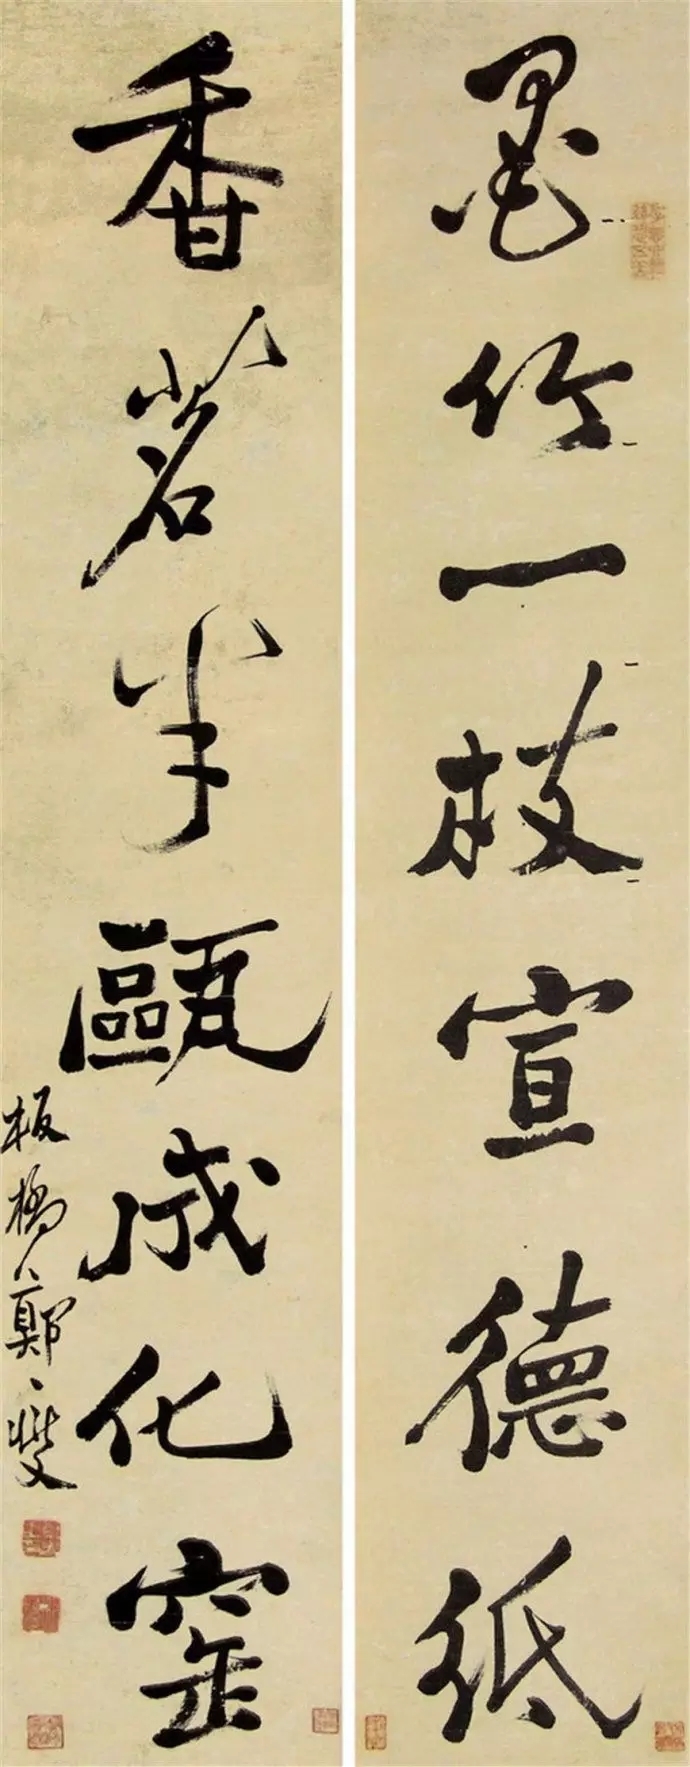 墨竹一枝宣德紙
香茗半甌成化窑
板橋鄭燮